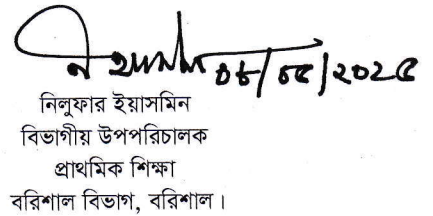 ০৮/০৫/২০২৫
নিলুফার ইয়াসমিন
বিভাগীয় উপপরিচালক
প্রাথমিক শিক্ষা
বরিশাল বিভাগ, বরিশাল।